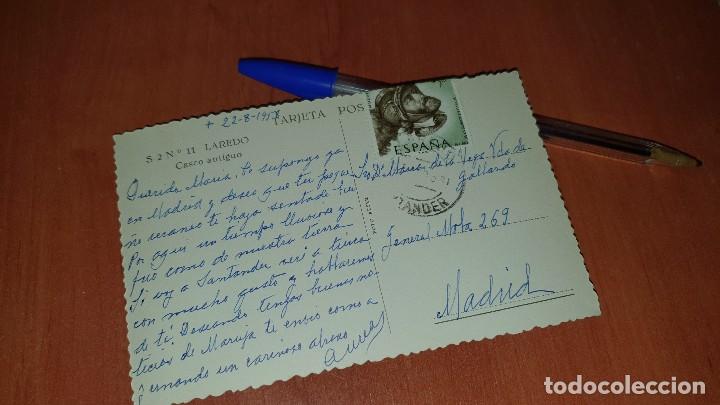 + 22-8-1958
TARJETA POS
S 2 Nº 11 LAREDO
Casco antiguo
Querida María. Te supongo ya
en Madrid y deseo que tu peque-
ño recaneo te haya sentado bien
Por aquí un tiempo lluvioso y
frío como de nuestra tierra
Si voy a Santander veré a
con mucho gusto y hablaremos
de ti. Deseando tengas buenas no-
ticias de Maruja te envío como a
Fernando un cariñoso abrazo
ESPAÑA
TANDER
Sra Dª María de la Vega Vda de
Gallardo
General Mola 269
Madrid
todocoleccion